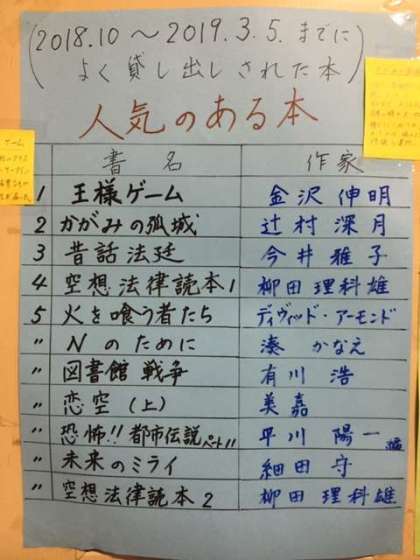 (2018.10～2019.3.5.までに
よく貸し出しされた本)
人気のある本
書名 作家
1 王様ゲーム 金沢伸明
2 かがみの孤城 辻村深月
3 昔話法廷 今井雅子
4 空想法律読本1 柳田理科雄
5 火を喰う者たち ディヴィッド・アーモンド
〃 Nのために 湊かなえ
〃 図書館戦争 有川浩
〃 恋空(上) 美嘉
〃 恐怖!!都市伝説パート11 平川陽一編
〃 未来のミライ 細田守
〃 空想法律読本2 柳田理科雄
ゲーム